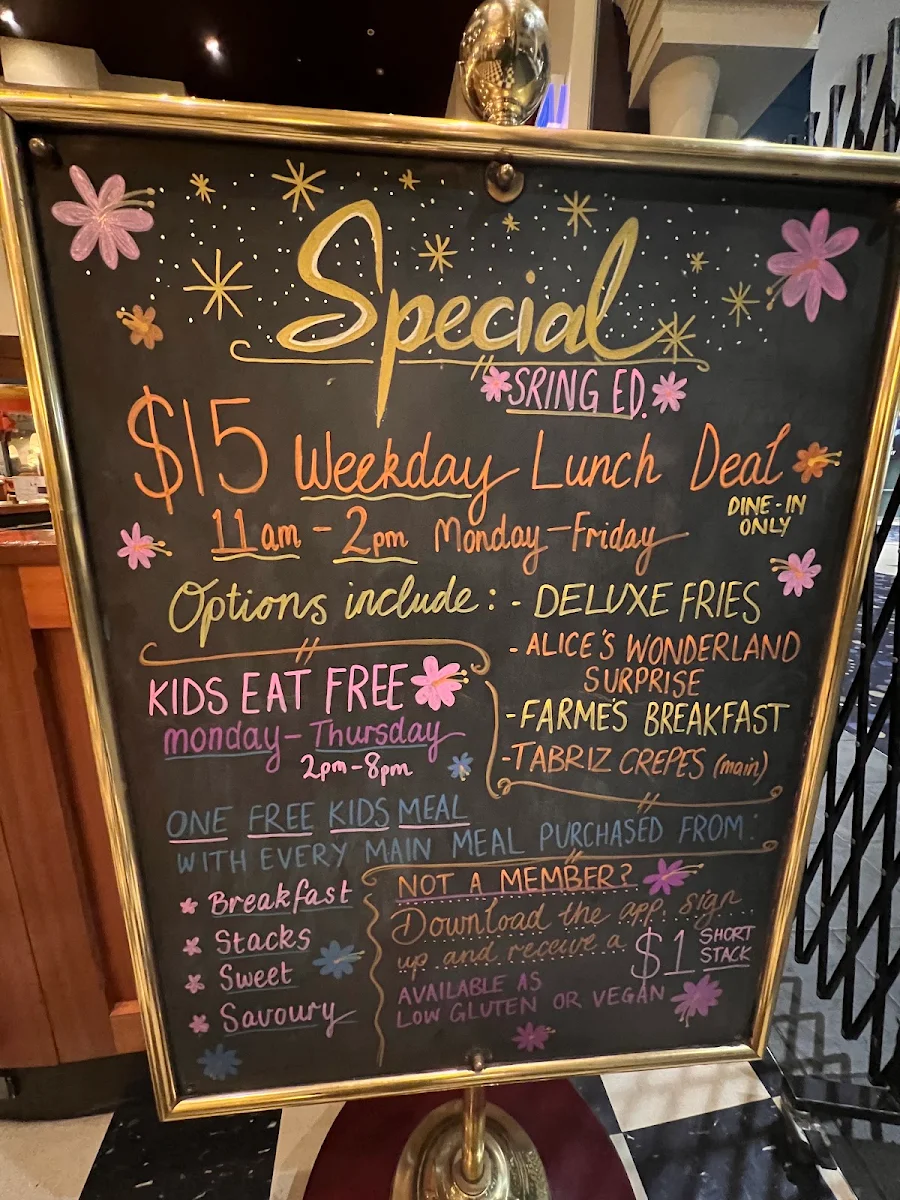 Special
SRING ED.
$15 Weekday Lunch Deal
DINE-IN
ONLY
11am - 2pm Monday-Friday
Options include:
- DELUXE FRIES
- ALICE'S WONDERLAND
SURPRISE
- FARME'S BREAKFAST
- TABRIZ CREPES (main)
KIDS EAT FREE
monday-Thursday
2pm-8pm
ONE FREE KIDS MEAL
WITH EVERY MAIN MEAL PURCHASED FROM:
Breakfast
Stacks
Sweet
Savoury
NOT A MEMBER?
Download the app, sign
up and receive a $1 SHORT
STACK
AVAILABLE AS
LOW GLUTEN OR VEGAN